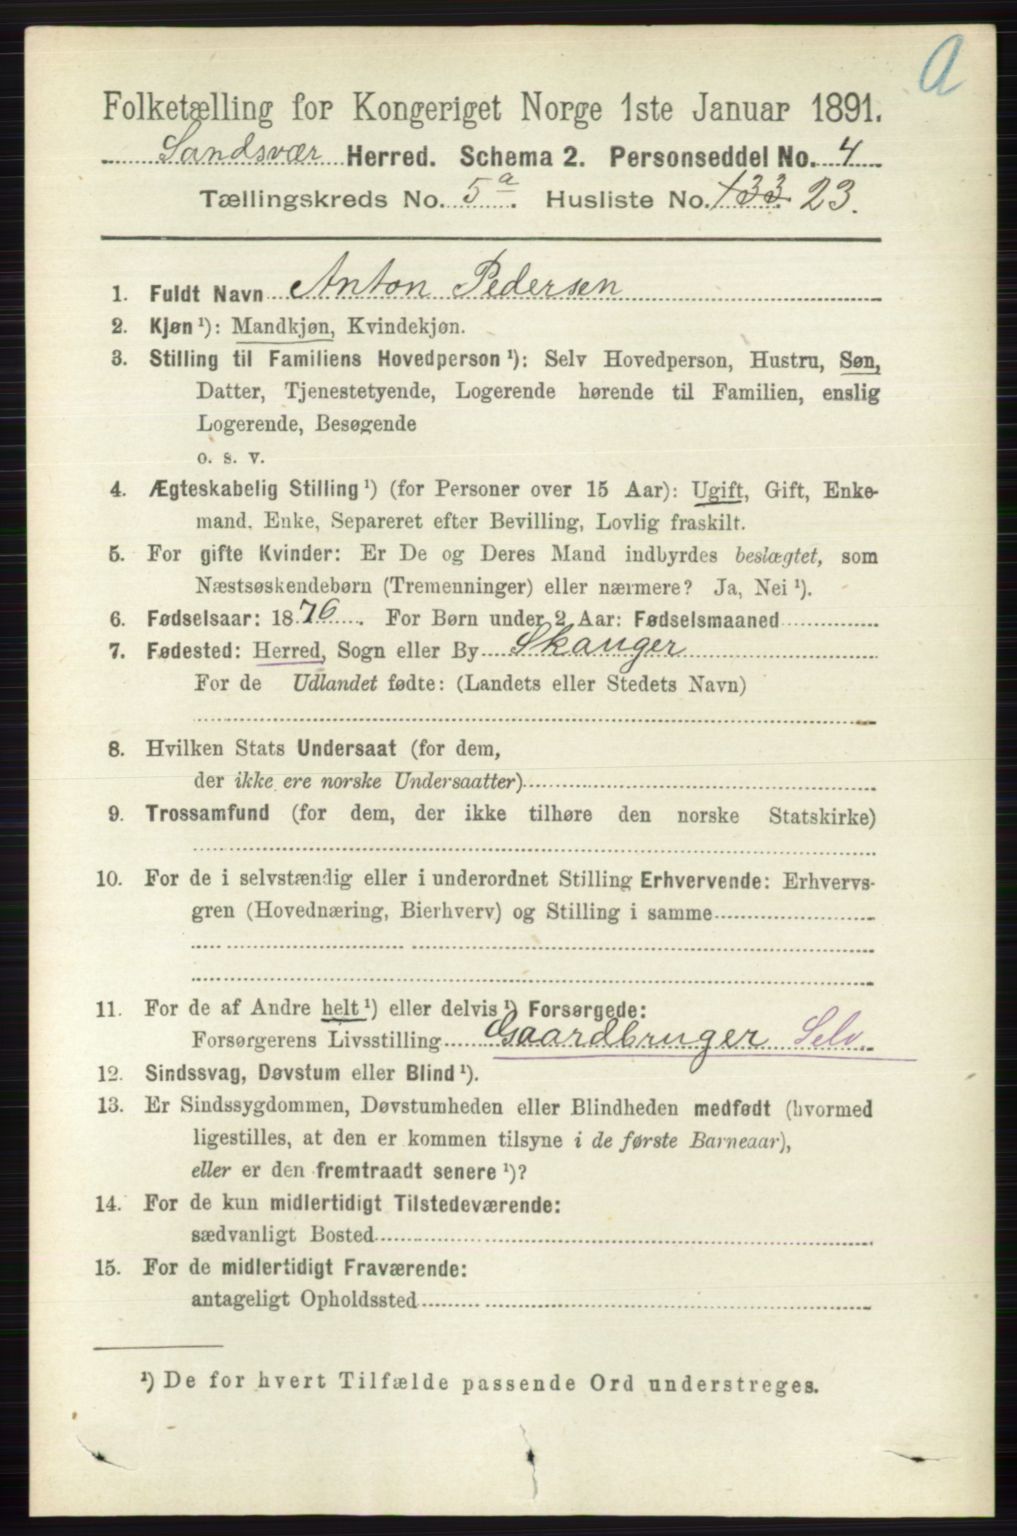 a
Folketælling for Kongeriget Norge 1ste Januar 1891.
Sandsvær Herred. Schema 2. Personseddel No. 4
Tællingskreds No. 5a. Husliste No. 133 23.
1. Fuldt Navn Anton Pedersen
2. Kjøn ¹): Mandkjøn, Kvindekjøn.
3. Stilling til Familiens Hovedperson ¹): Selv Hovedperson, Hustru, Søn,
Datter, Tjenestetyende, Logerende hørende til Familien, enslig
Logerende, Besøgende
o. s. v.
4. Ægteskabelig Stilling ¹) (for Personer over 15 Aar): Ugift, Gift, Enke-
mand, Enke, Separeret efter Bevilling, Lovlig fraskilt.
5. For gifte Kvinder: Er De og Deres Mand indbyrdes beslægtet, som
Næstsøskendebørn (Tremenninger) eller nærmere? Ja, Nei ¹).
6. Fødselsaar: 1876. For Børn under 2 Aar: Fødselsmaaned
7. Fødested: Herred, Sogn eller By Skauger
For de Udlandet fødte: (Landets eller Stedets Navn)
8. Hvilken Stats Undersaat (for dem,
der ikke ere norske Undersaatter)
9. Trossamfund (for dem, der ikke tilhøre den norske Statskirke)
10. For de i selvstændig eller i underordnet Stilling Erhvervende: Erhvervs-
gren (Hovednæring, Bierhverv) og Stilling i samme
11. For de af Andre helt ¹) eller delvis ¹) Forsørgede:
Forsørgerens Livsstilling Gaardbruger Selv.
12. Sindssvag, Døvstum eller Blind ¹).
13. Er Sindssygdommen, Døvstumheden eller Blindheden medfødt (hvormed
ligestilles, at den er kommen tilsyne i de første Barneaar),
eller er den fremtraadt senere ¹)?
14. For de kun midlertidigt Tilstedeværende:
sædvanligt Bosted
15. For de midlertidigt Fraværende:
antageligt Opholdssted
¹) De for hvert Tilfælde passende Ord understreges.